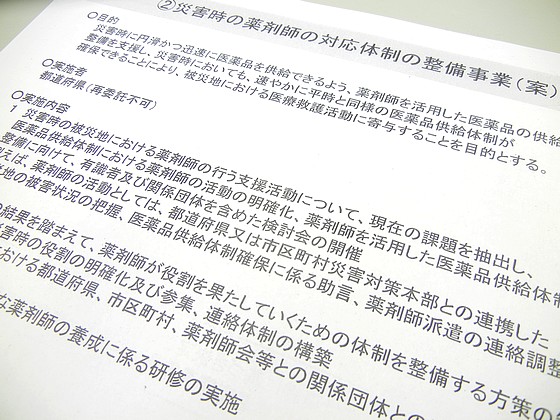 ②災害時の薬剤師の対応体制の整備事業(案)
○目的
災害時に円滑かつ迅速に医薬品を供給できるよう、薬剤師を活用した医薬品の供給
整備を支援し、災害時においても、速やかに平時と同様の医薬品供給体制が
確保できることにより、被災地における医療救護活動に寄与することを目的とする。
○実施者
都道府県(再委託不可)
○実施内容
1 災害時の被災地における薬剤師の行う支援活動について、現在の課題を抽出し、
医薬品供給体制における薬剤師の活動の明確化、薬剤師を活用した医薬品供給体
整備に向けて、有識者及び関係団体を含めた検討会の開催
えば、薬剤師の活動としては、都道府県又は市区町村災害対策本部との連携した
地の被害状況の把握、医薬品供給体制確保に係る助言、薬剤師派遣の連絡調整
結果を踏まえて、薬剤師が役割を果たしていくための体制を整備する方策の
害時の役割の明確化及び参集、連絡体制の構築
おける都道府県、市区町村、薬剤師会等との関係団体との
な薬剤師の養成に係る研修の実施